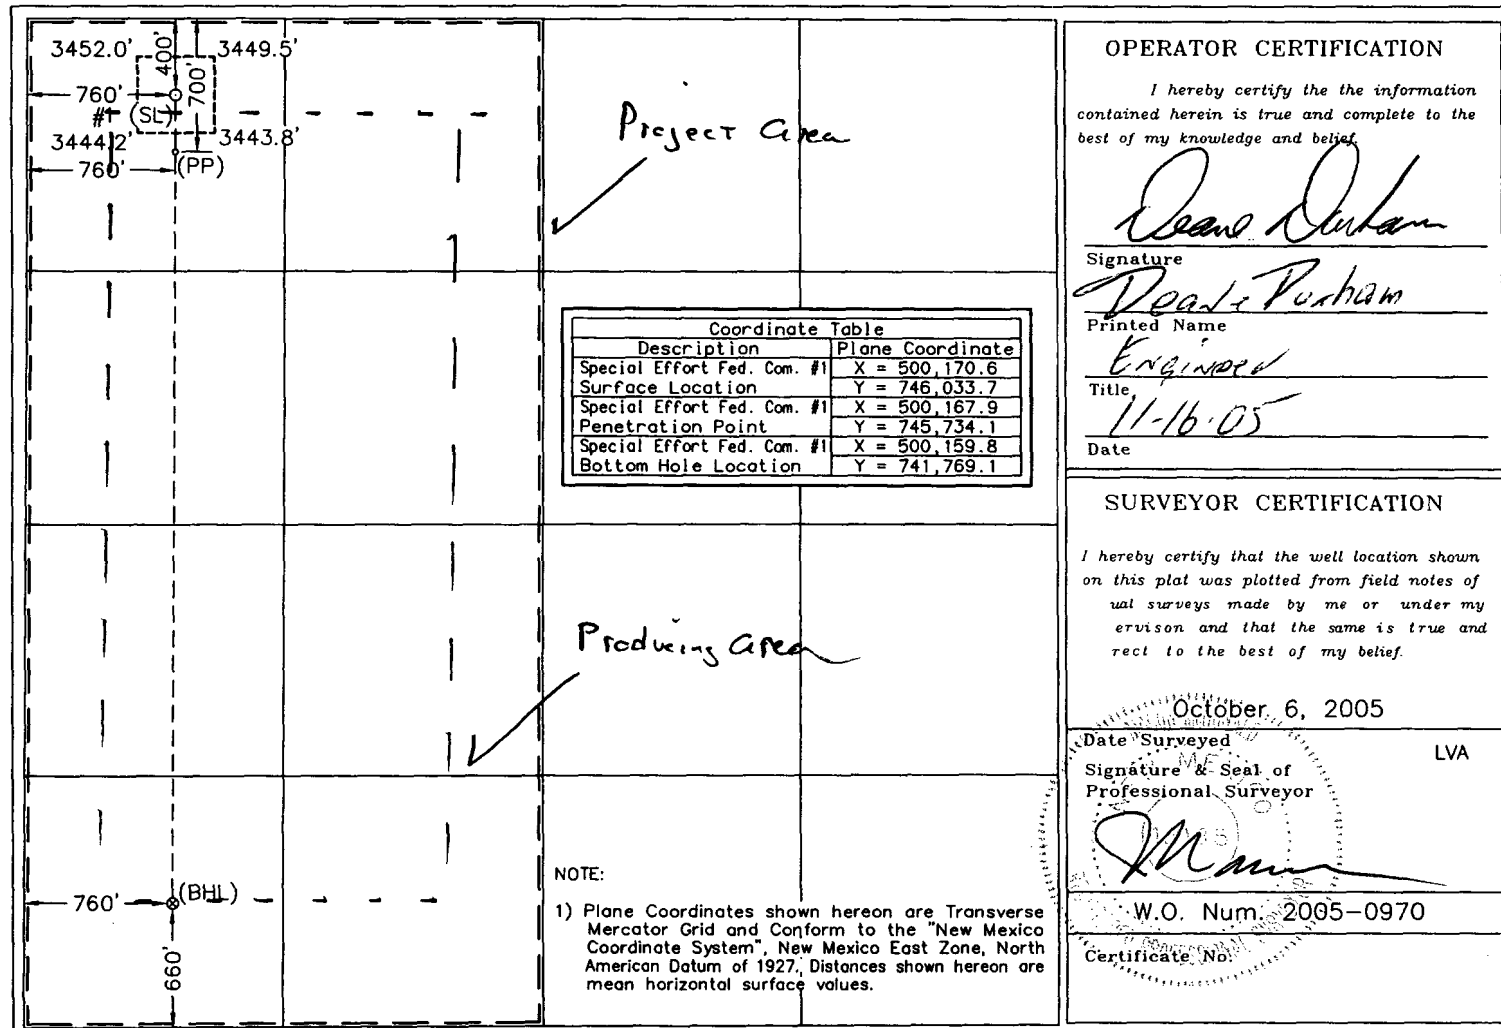 3452.0' 400' 3449.5'
760' 700'
#1 (SL)
3444.2' 3443.8'
760' (PP)
Project Area
Coordinate Table
Description Plane Coordinate
Special Effort Fed. Com. #1 X = 500,170.6
Surface Location Y = 746,033.7
Special Effort Fed. Com. #1 X = 500,167.9
Penetration Point Y = 745,734.1
Special Effort Fed. Com. #1 X = 500,159.8
Bottom Hole Location Y = 741,769.1
Producing Area
760' (BHL)
660'
NOTE:
1) Plane Coordinates shown hereon are Transverse
Mercator Grid and Conform to the "New Mexico
Coordinate System", New Mexico East Zone, North
American Datum of 1927. Distances shown hereon are
mean horizontal surface values.
OPERATOR CERTIFICATION
I hereby certify the the information
contained herein is true and complete to the
best of my knowledge and belief.
Deane Durham
Signature
Deane Durham
Printed Name
Engineer
Title
11-16-05
Date
SURVEYOR CERTIFICATION
I hereby certify that the well location shown
on this plat was plotted from field notes of
ual surveys made by me or under my
ervison and that the same is true and
rect to the best of my belief.
October 6, 2005
Date Surveyed LVA
Signature & Seal of
Professional Surveyor
W.O. Num. 2005-0970
Certificate No.